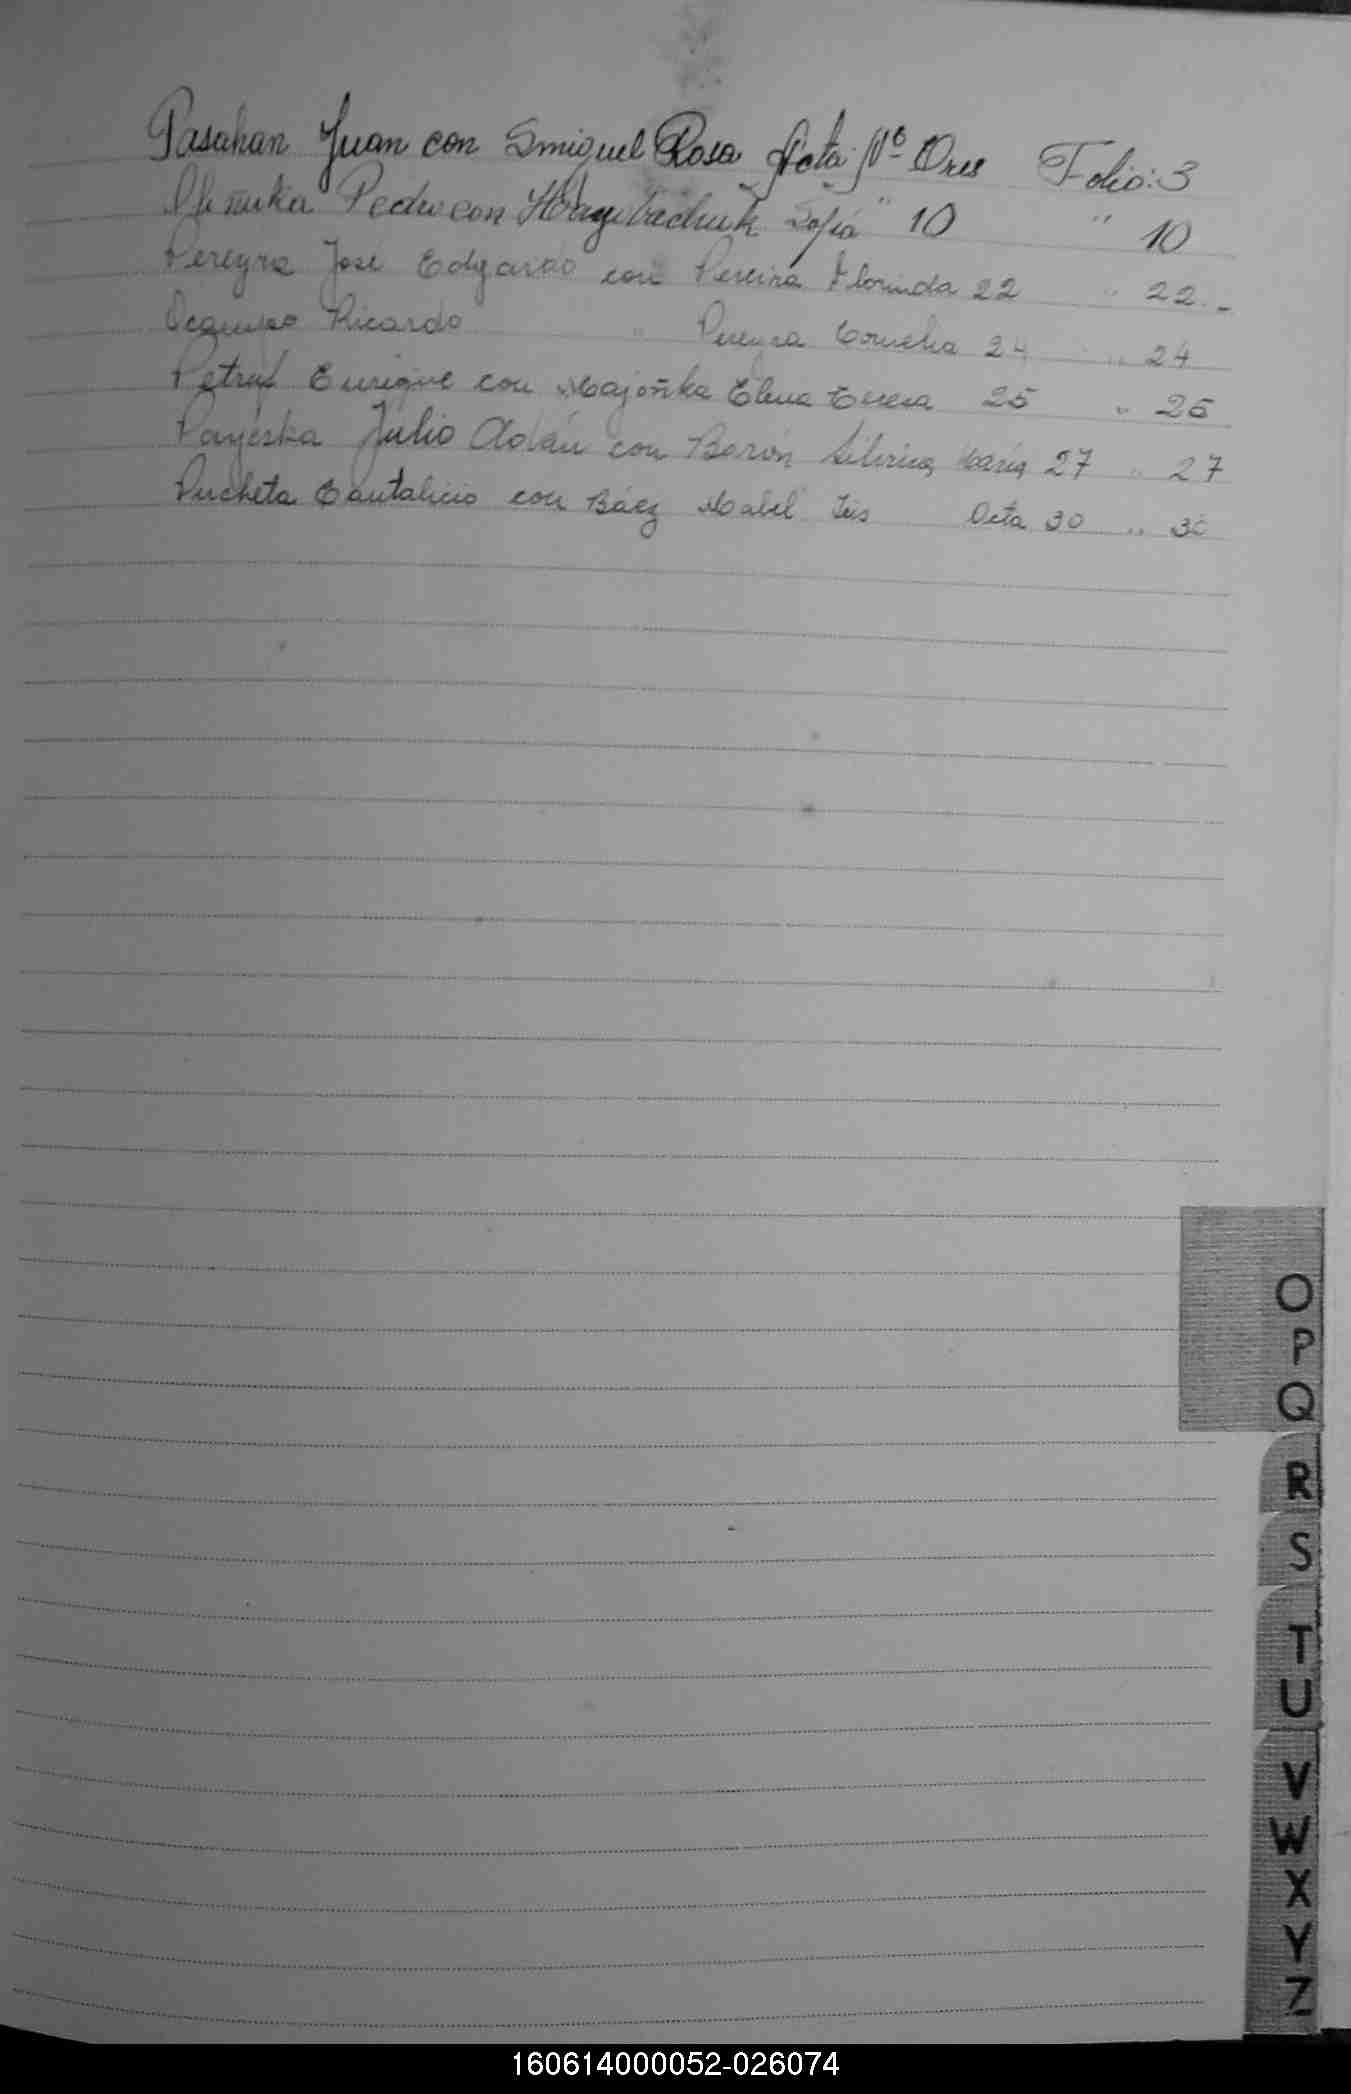 Pasahan Juan con Smiguel Rosa Acta Nº Tres Folio: 3
Pedro con Sofia " 10 " 10
Pereyra José Edgardo con Pereira Florinda 22 " 22.-
Ocampo Ricardo " Pereyra Cornelia 24 " 24
Enrique con Elena Teresa 25 " 25
Julio Adán con Barón Silvina María 27 " 27
Pucheta Cantalicio con Báez Mabel Inés Acta 30 " 30
O
P
Q
R
S
T
U
V
W
X
Y
Z
160614000052-026074